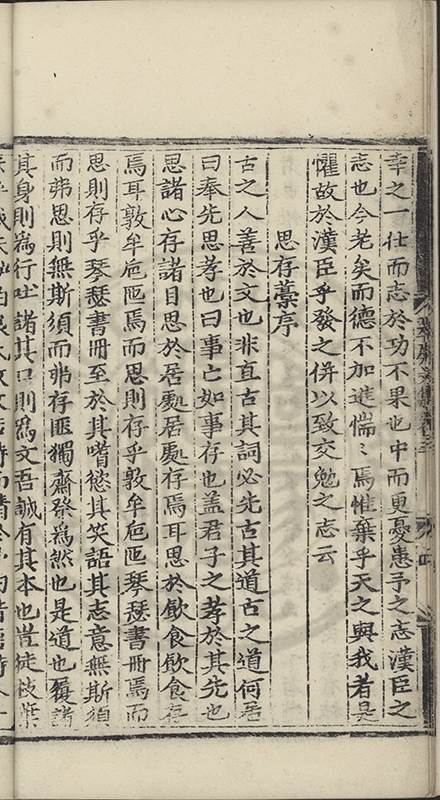 幸之一仕而志於功不果也中而更憂患予之志漢臣之
志也今老矣而德不加進惴〻焉惟棄乎天之與我者是
懼故於漢臣乎發之併以致交勉之志云
思存藁序
古之人善於文也非直古其詞必先古其道古之道何居
曰奉先思孝也曰事亡如事存也盖君子之孝於其先也
思諸心存諸目思於居處居處存焉耳思於飲食飲食存
焉耳敦牟巵匜焉而思則存乎敦牟巵匜琴瑟書冊焉而
思則存乎琴瑟書冊至於其嗜慾其笑語其志意無斯須
而弗思則無斯須而弗存匪獨齋祭爲然也是道也履諸
其身則爲行吐諸其口則爲文吾誠有其本也豈徒枝葉